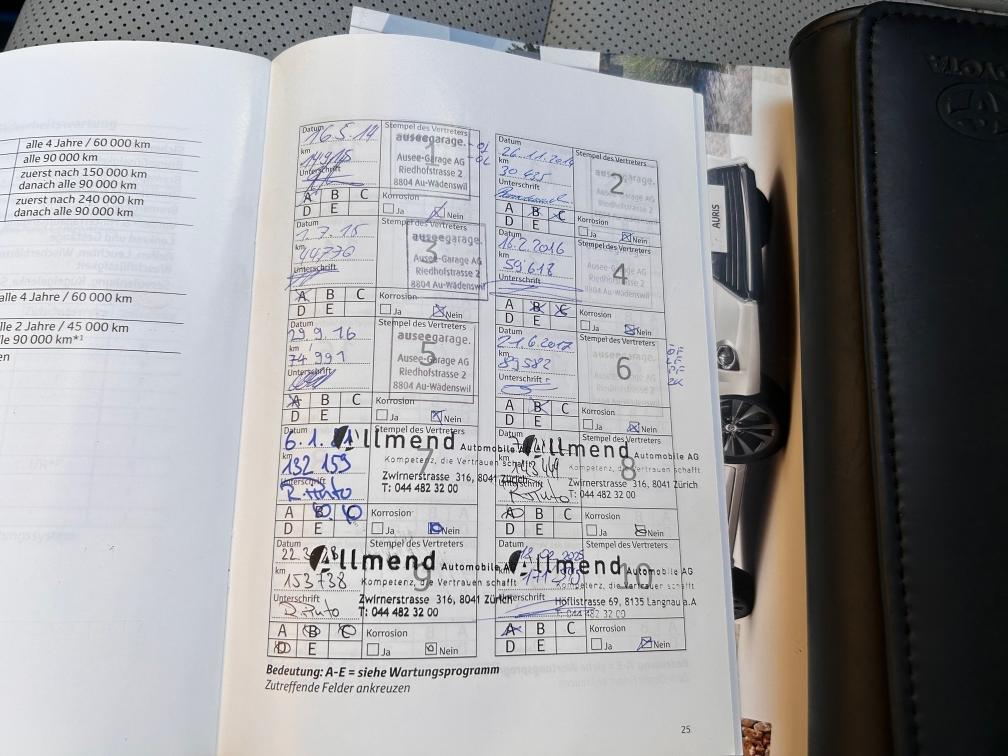 alle 4 Jahre / 60 000 km
alle 90 000 km
zuerst nach 150 000 km
danach alle 90 000 km
zuerst nach 240 000 km
danach alle 90 000 km
alle 4 Jahre / 60 000 km
alle 2 Jahre / 45 000 km
alle 90 000 km*¹
Datum 16.5.14
Stempel des Vertreters
km
auseegarage.
1
Ausee-Garage AG
Riedhofstrasse 2
8804 Au-Wädenswil
Unterschrift
A B C
D E
Korrosion
Ja Nein
Datum 26.11.2014
Stempel des Vertreters
km 30 435
auseegarage.
2
Ausee-Garage AG
Riedhofstrasse 2
Unterschrift
A B C
D E
Korrosion
Ja Nein
Datum 1.7.15
Stempel des Vertreters
km 44770
auseegarage.
3
Ausee-Garage AG
Riedhofstrasse 2
8804 Au-Wädenswil
Unterschrift
A B C
D E
Korrosion
Ja Nein
Datum 16.2.2016
Stempel des Vertreters
km 59'618
4
Ausee-Garage AG
Riedhofstrasse 2
8804 Au-Wädenswil
Unterschrift
A B C
D E
Korrosion
Ja Nein
Datum 29.9.16
Stempel des Vertreters
km 74 991
auseegarage.
5
Ausee-Garage AG
Riedhofstrasse 2
8804 Au-Wädenswil
Unterschrift
A B C
D E
Korrosion
Ja Nein
Datum 21.6.2017
Stempel des Vertreters
km 89582
6
Unterschrift
A B C
D E
Korrosion
Ja Nein
Datum 6.1.
Stempel des Vertreters
Allmend Automobile AG
7
km 132 159
Kompetenz, die Vertrauen schafft
Zwirnerstrasse 316, 8041 Zürich
T: 044 482 32 00
Unterschrift
A B C
D E
Korrosion
Ja Nein
Datum
Stempel des Vertreters
Allmend Automobile AG
8
km
Kompetenz, die Vertrauen schafft
Zwirnerstrasse 316, 8041 Zürich
T: 044 482 32 00
Unterschrift
A B C
D E
Korrosion
Ja Nein
Datum
Stempel des Vertreters
Allmend Automobile AG
9
km 153738
Kompetenz, die Vertrauen schafft
Zwirnerstrasse 316, 8041 Zürich
T: 044 482 32 00
Unterschrift
A B C
D E
Korrosion
Ja Nein
Datum
Stempel des Vertreters
Allmend Automobile AG
10
km
Kompetenz, die Vertrauen schafft
Höflistrasse 69, 8135 Langnau a.A
T: 044 482 32 00
Unterschrift
A B C
D E
Korrosion
Ja Nein
Bedeutung: A-E = siehe Wartungsprogramm
Zutreffende Felder ankreuzen
25
AURIS
TOYOTA